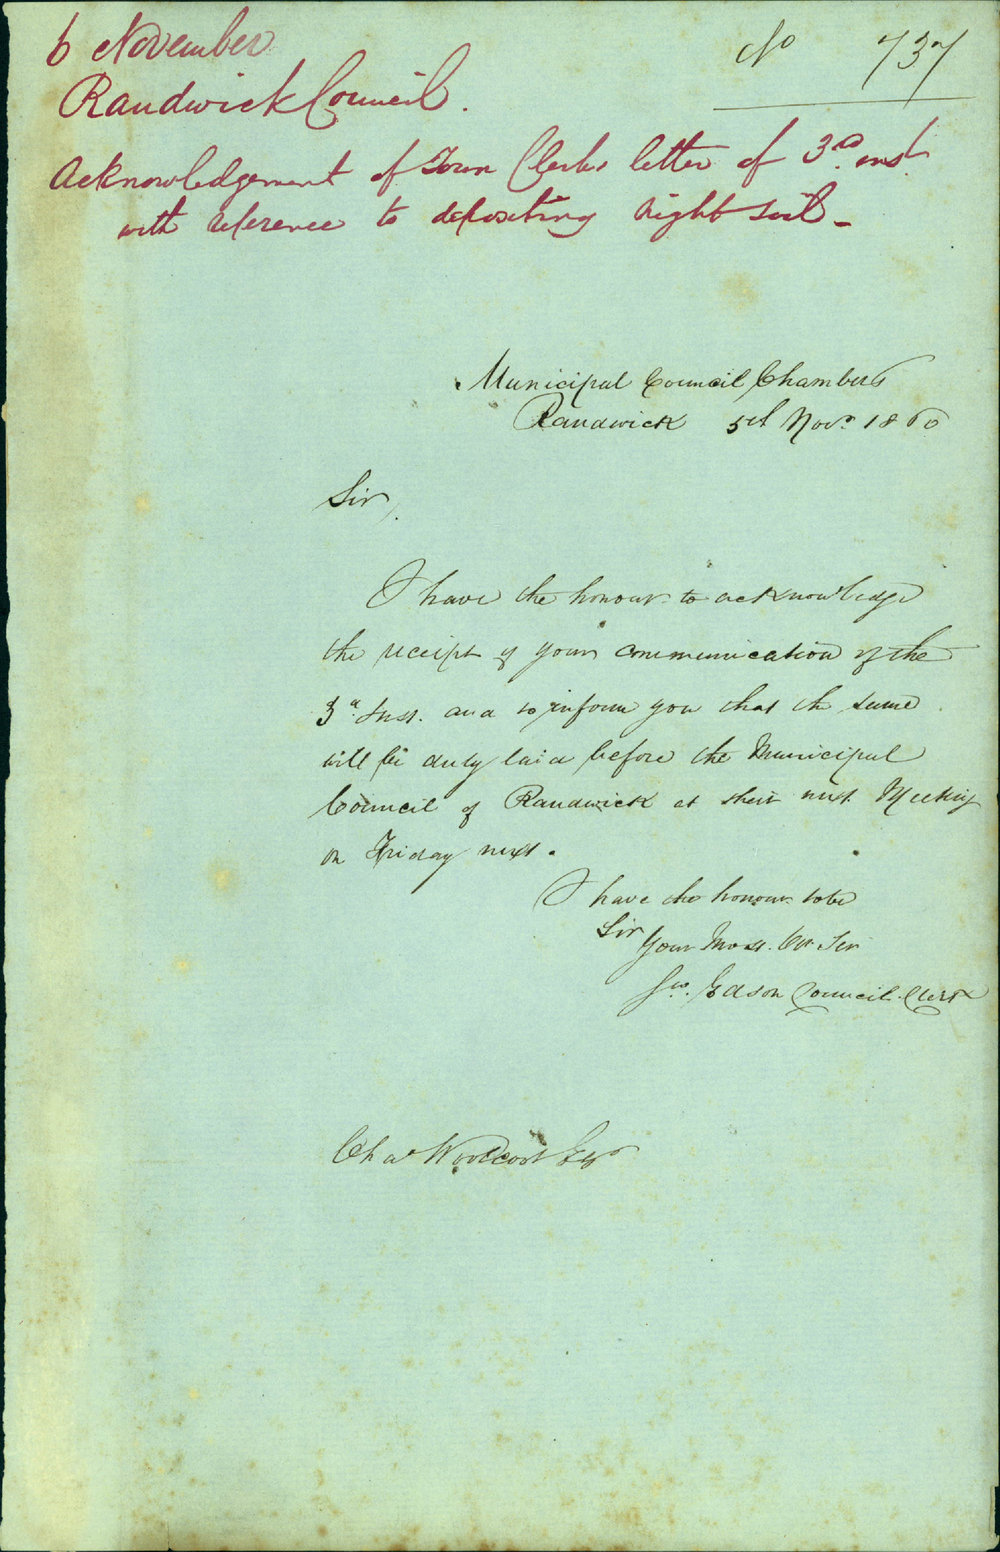 6 November
No 737
Randwick Council.
Acknowledgement of Town Clerks letter of 3rd inst
with reference to depositing night soil -
Municipal Council Chambers
Randwick 5th Novr 1860
Sir,
I have the honour to acknowledge
the receipt of your communication of the
3rd Inst. and to inform you that the same
will be duly laid before the Municipal
Council of Randwick at their next Meeting
on Friday next.
I have the honour to be
Sir
Your Most. Obt Ser
Council Clerk
Chas Woolcott Esqr